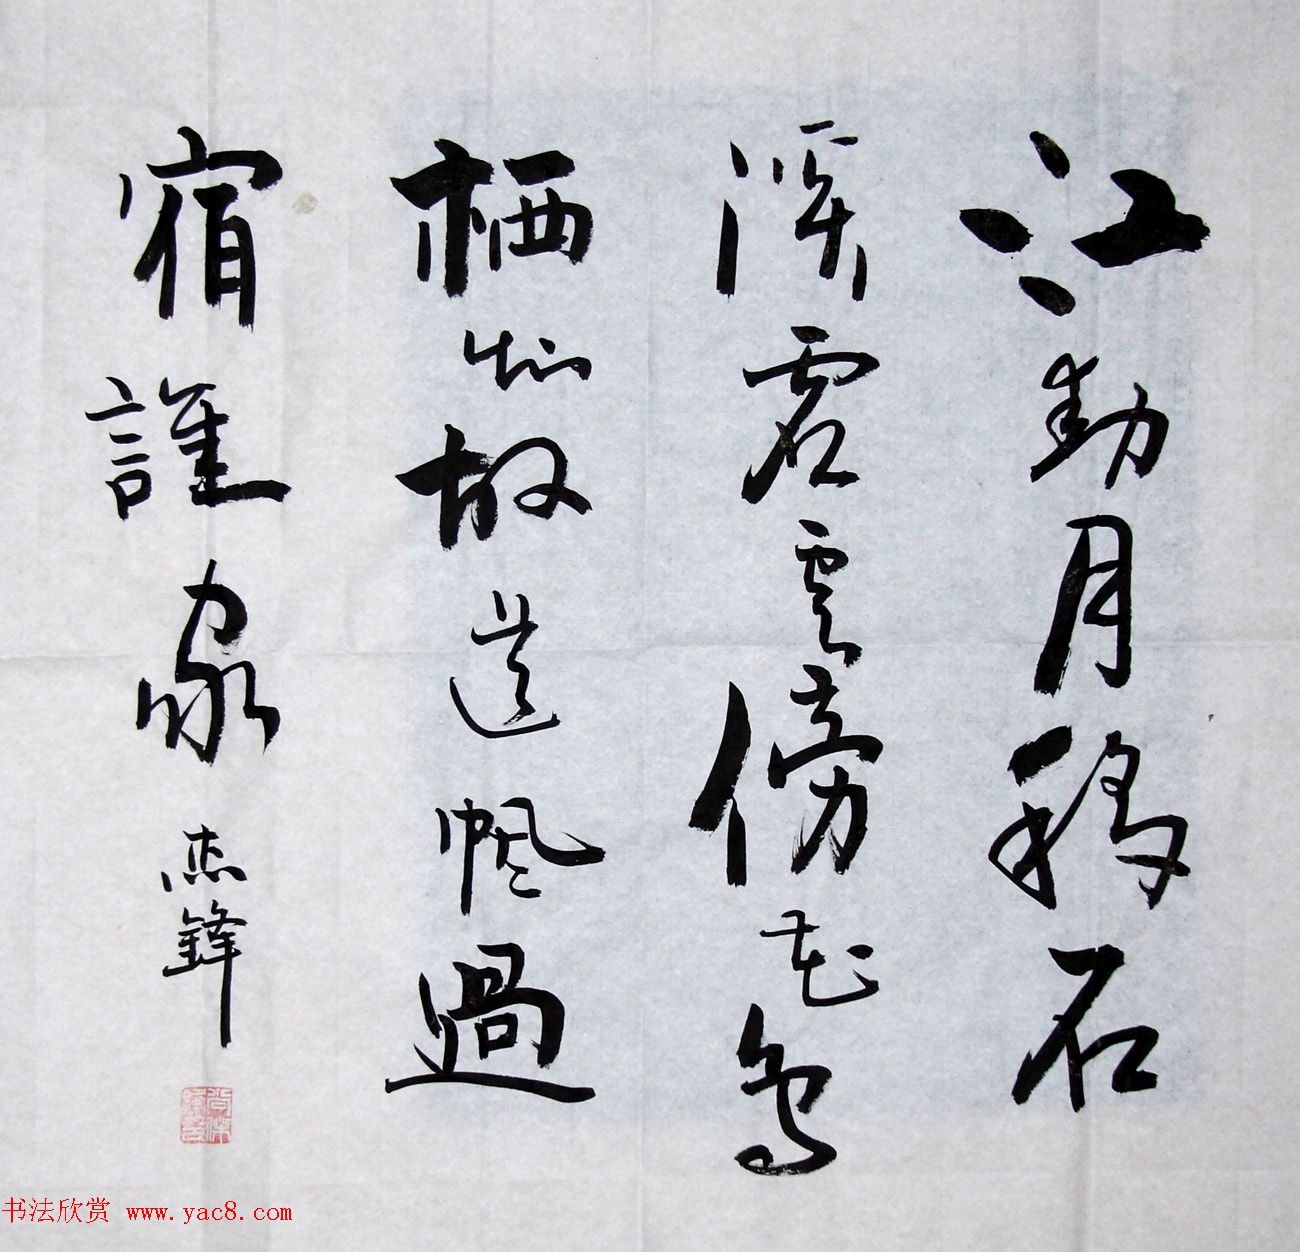 江動月移石
溪虛雲傍花鳥
栖知故道帆過
宿誰家 杰鋒
书法欣赏 www.yac8.com